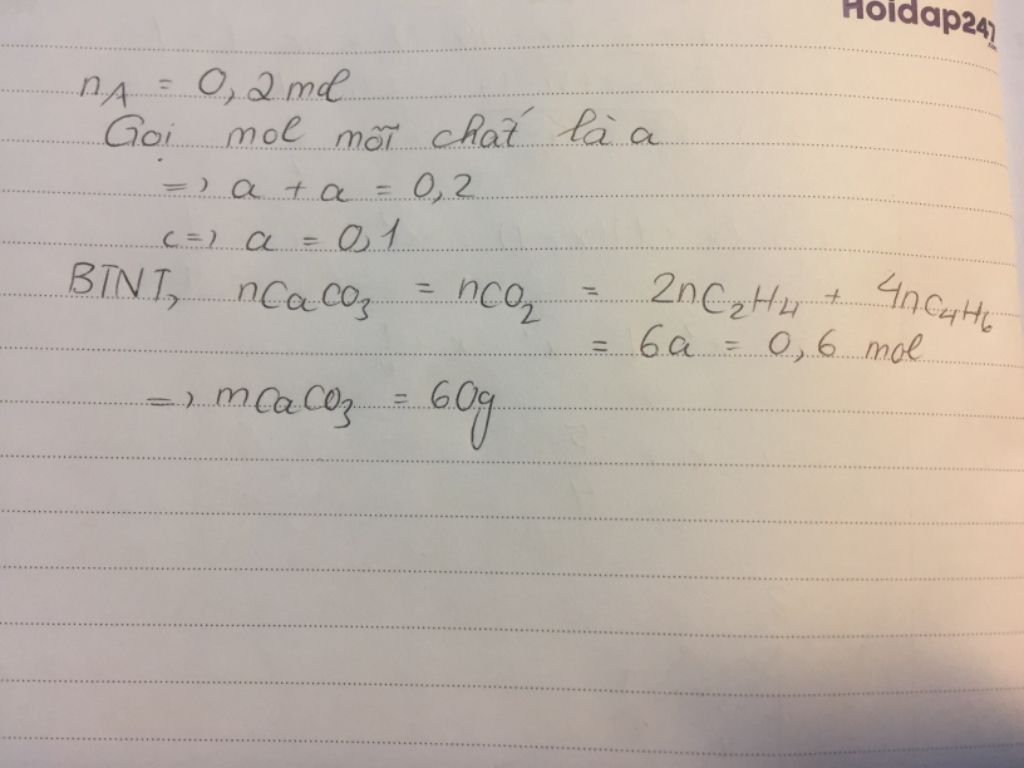 Hoidap247
nA = 0,2 mol
Gọi mol mỗi chất là a
=> a + a = 0,2
<=> a = 0,1
BTNT, nCaCO3 = nCO2 = 2nC2H4 + 4nC4H6
= 6a = 0,6 mol
=> mCaCO3 = 60g